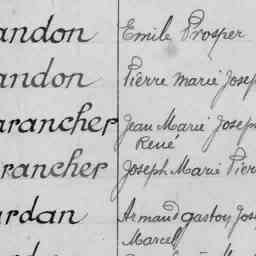 andon Emile Prosper
andon Pierre marie Josep
arancher Jean Marie Joseph
René
rancher Joseph Marie Pierr
urdan Armand gaston Jos
Marcel